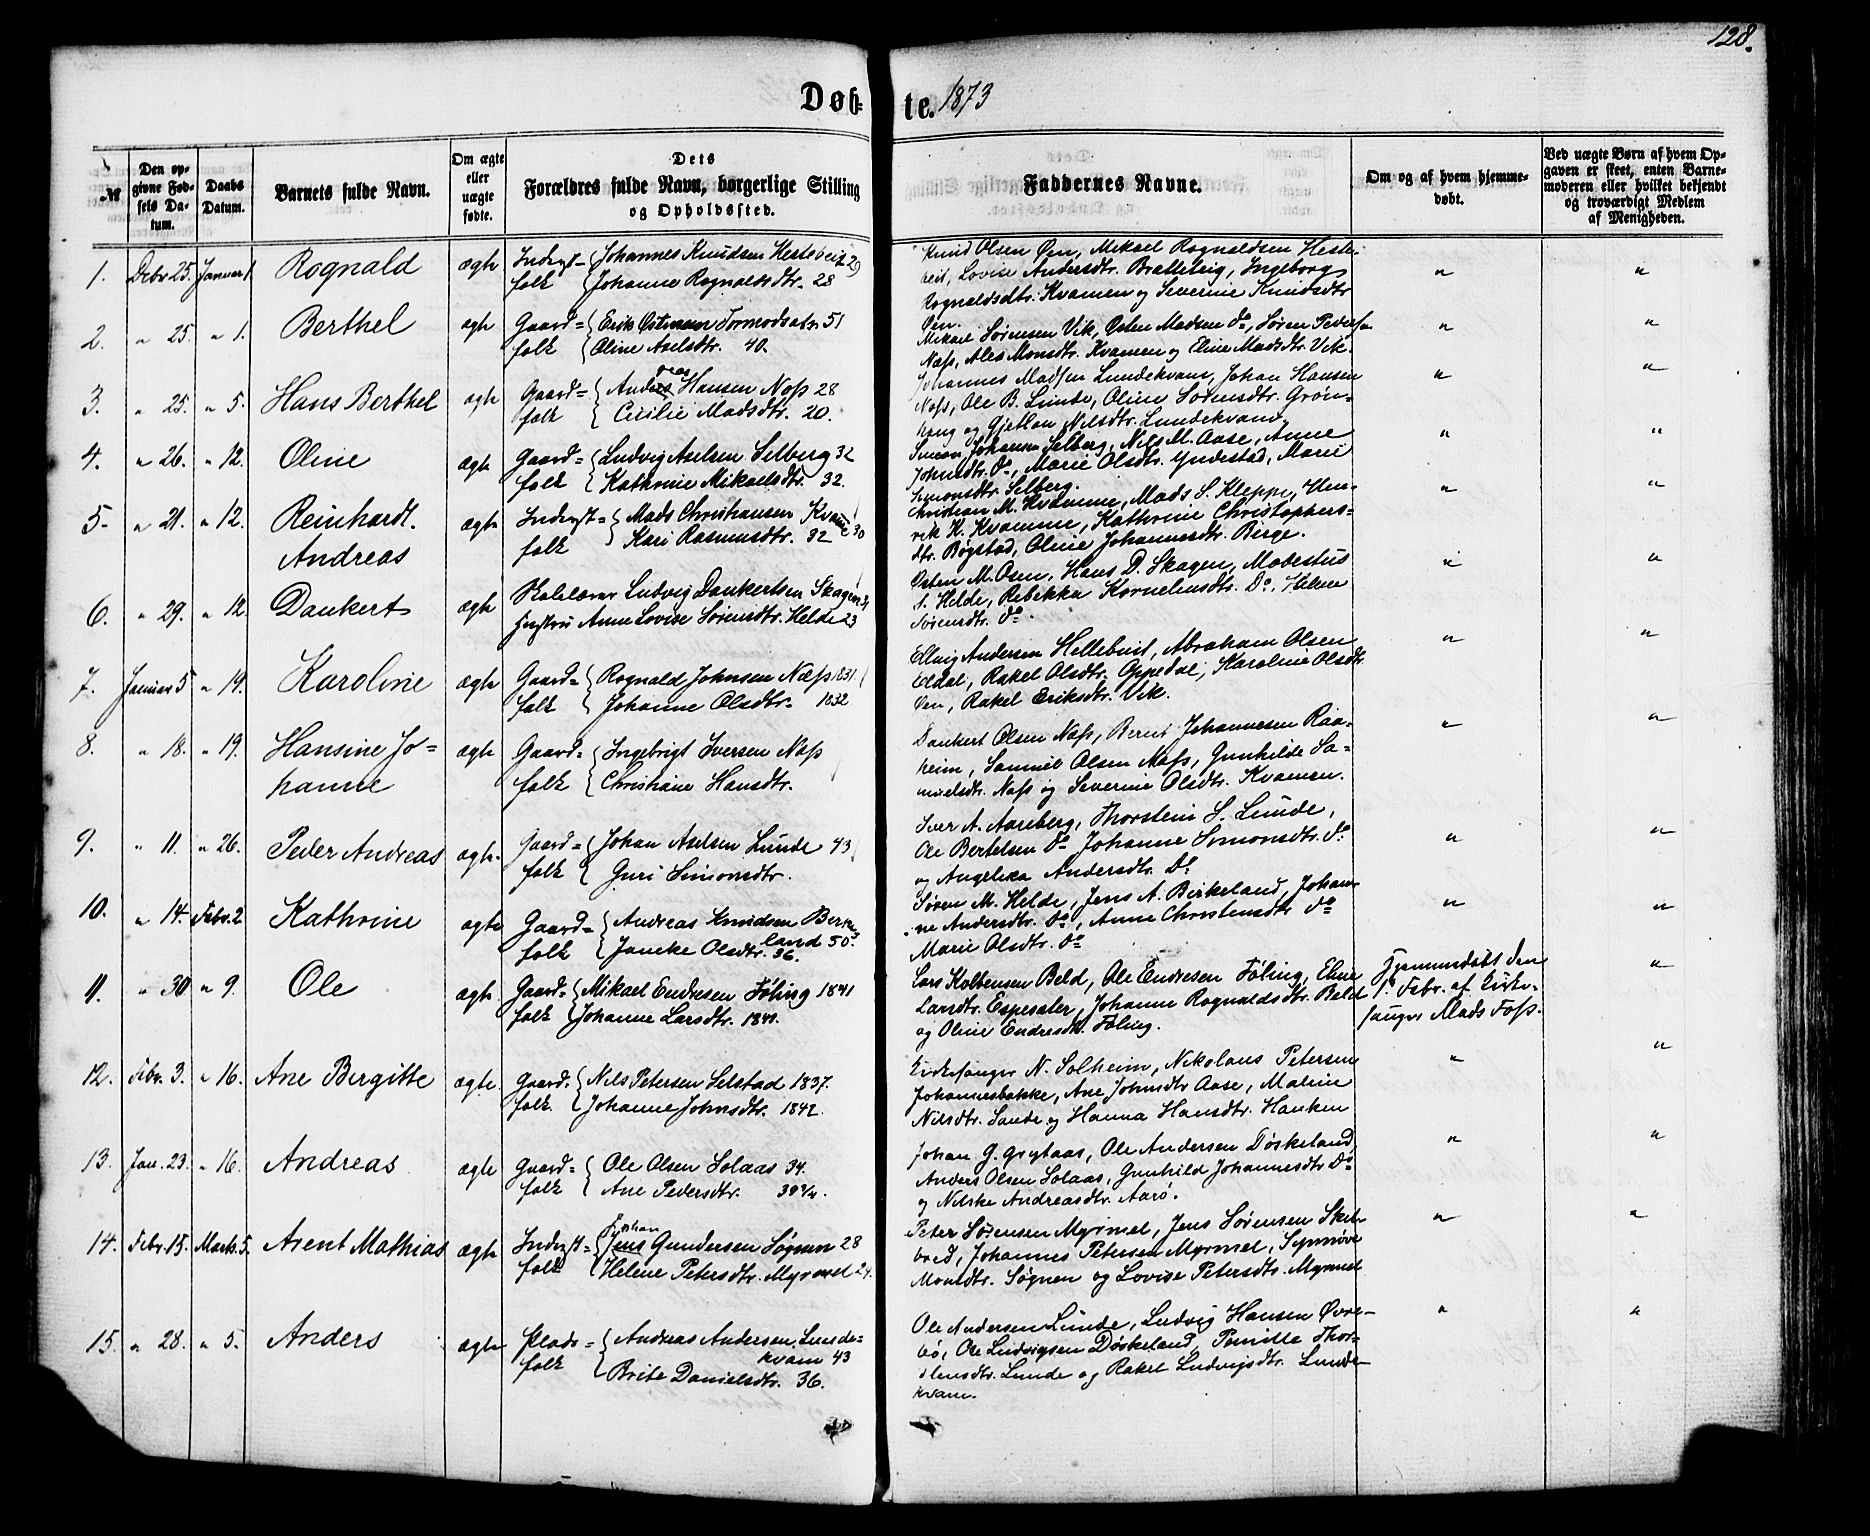 128.
Døb-te. 1873
№
Den op-
givne Fød-
sels Da-
tum.
Daabs
Datum.
Barnets fulde Navn.
Om ægte
eller
uægte
fødte.
Dets
Forældres fulde Navn, borgerlige Stilling
og Opholdssted.
Faddernes Navne.
Om og af hvem hjemme-
døbt.
Ved uægte Børn af hvem Op-
gaven er skeet, enten Barne-
moderen eller hvilket bekjendt
og troværdigt Medlem
af Menigheden.
1. Debr 25. Januar 1. Rognald ægte Inderst= folk
Johannes Knudsen Hesteb 29
Johanne Rognaldsdtr. 28
Knud Olsen Øen, Mikael Rognaldsen Heste-
beit, Lovise Andersdtr. Brattebeig, Ingeborg
Rognaldsdtr. Kvamen og Severine Knudsdtr
Øen.
" "
2. " 25. " 1. Berthel ægte Gaard= folk
Erik Østensen Tormodsæter 51
Oline Axelsdtr. 40.
Mikael Sørensen Vik, Østen Madsen do, Søren Peders
Næss, Ales Monsdtr. Kvamen og Eline Madsdtr. Vik.
" "
3. " 25. " 5. Hans Berthel ægte Gaard= folk
Andreas Hansen Næss 28
Cecilie Madsdtr. 20.
Johannes Madsen Lundekvam, Johan Hansen
Næss, Ole B. Lunde, Oline Sørensdtr. Grøn-
haug og Gjetlau Nilsdtr. Lundekvam.
" "
4. " 26. " 12. Oline ægte Gaard= folk
Ludvig Axelsen Selberg 32
Kathrine Mikaelsdtr. 32.
Simon Johansen Selberg, Nils M. Aase, Anne
Johnsdtr. do, Marie Olsdtr. Yndestad, Marie
Simonsdtr. Selberg.
" "
5. " 21. " 12. Reinhardt
Andreas ægte Inderst= folk
Mads Christiansen Kvamme 30
Kari Rasmusdtr. 32
Christian M. Kvamme, Mads S. Kleppe, Hen-
rik H. Kvamme, Kathrine Christophers-
dtr. Bøgstad, Oline Johannesdtr. Birge.
" "
6. " 29. " 12. Dankert ægte
Skolelærer Ludvig Dankertsen Skagen 31
Hustru Anne Lovise Sørensdtr. Helde 23
Østen M. Osen, Hans D. Skagen, Modestus
S. Helde, Rebekka Korneliusdtr. Do, Helene
Sørensdtr. do
" "
7. Januar 5 " 14. Karoline ægte Gaard= folk
Rognald Johnsen Næss 1831
Johanne Olsdtr. 1832
Ellvig Andersen Hellebust, Abraham Olsen
Eldal, Rakel Olsdtr. Oppedal, Karoline Olsdtr.
Øen, Rakel Eriksdtr. Vik.
" "
8. " 18. " 19. Hansine Jo=
hanne ægte Gaard= folk
Ingebrigt Iversen Næss
Christiane Hansdtr.
Dankert Olsen Næss, Bernt Johannesen Raa-
heim, Samuel Olsen Næss, Gunhilde Sa-
muelsdtr. Næss og Severine Olsdtr. Kvamen.
" "
9. " 11. " 26. Peder Andreas ægte. Gaard= folk
Johan Axelsen Lunde 43
Guri Simonsdtr.
Iver A. Aareberg, Thorstein S. Lunde,
Ole Bertelsen do Johanne Simonsdtr. do
og Angelika Andersdtr. Do
" "
10. " 14. Febr. 2. Kathrine ægte Gaard= folk
Andreas Knudsen Birke
land 50.
Janeke Olsdtr. 36.
Søren M. Helde, Jens A. Birkeland, Johan-
ne Andersdtr. do, Anne Christensdtr do
Marie Olsdtr. do
" "
11. " 30 " 9. Ole ægte Gaard= folk
Mikael Endresen Føling 1841
Johanne Larsdtr. 1841.
Lars Kolbensen Beld, Ole Endresen Føling, Eline
Larsdtr. Espesæter, Johanne Rognaldsdtr. Beld
og Oline Endresdtr. Føling.
Hjemmedøbt den
1. Febr. af Kirke-
sanger Mads Foss.
"
12. Febr. 3. " 16. Ane Bergitte ægte Gaard= folk
Nils Petersen Selstad 1837.
Johanne Johnsdtr. 1842.
Kirkesanger N. Solheim, Nikolaus Petersen
Johannesbakke, Ane Johnsdtr Aase, Malene
Nilsdtr. Sande og Hanna Hansdtr. Hauken
" "
13. Jan. 23. " 16. Andreas ægte Gaard= folk
Ole Olsen Solaas 34.
Ane Pedersdtr. 39¾.
Johan G. Grytaas, Ole Andersen Døskeland,
Anders Olsen Solaas, Gunhild Johannesdtr Do
og Nilske Andreasdtr. Aarø.
" "
14. Febr. 15. Marts. 5. Arent Mathias ægte Inderst= folk
Johan
Jens Gundersen Søgnen 28
Helene Petersdtr. Myrmel 24.
Peter Sørensen Myrmel, Jens Sørensen Skil-
bred, Johannes Petersen Myrmel, Synnøve
Monsdtr. Søgnen og Lovise Petersdtr. Myrmel
" "
15. " 28. " 5. Anders ægte Plads= folk
Andreas Andersen Lunde=
kvam 43
Brite Danielsdtr. 36.
Ole Andersen Lunde, Ludvig Hansen Øvre-
bø, Ole Ludvigsen Døskeland, Pernille Thor-
stensdtr. Lunde og Rakel Ludvigsdtr. Lunde-
kvam.
" "